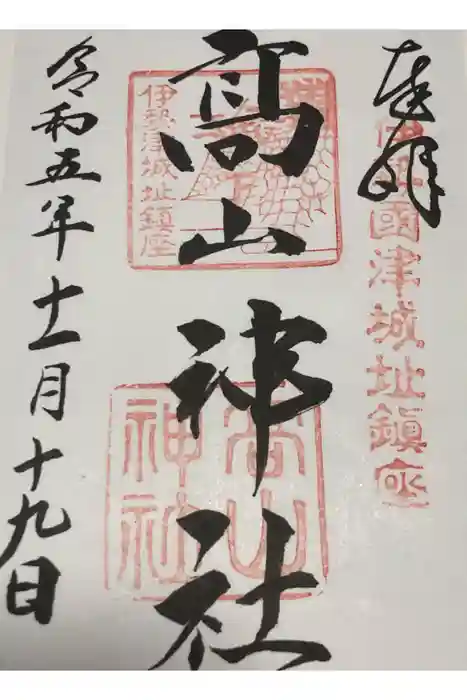 奉拝
伊勢國津城址鎮座
髙山神社
伊勢津城址鎮座
高山
神社
令和五年十一月十九日